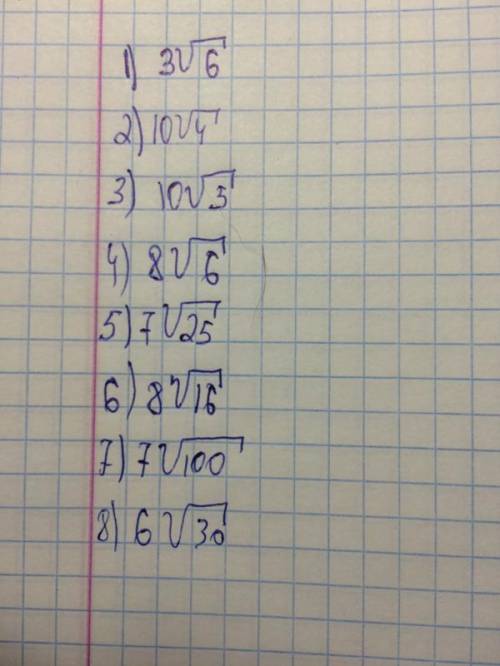 1) 3√6
2) 10√4
3) 10√5
4) 8√6
5) 7√25
6) 8√16
7) 7√100
8) 6√30